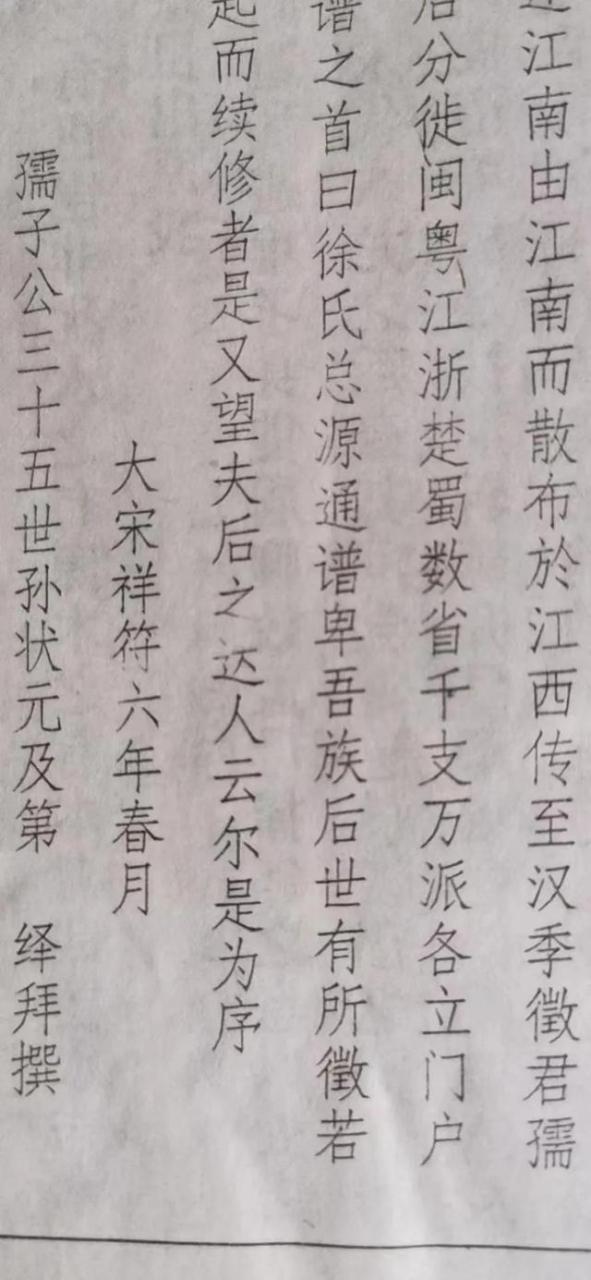 江南由江南而散布於江西传至汉季徵君孺
后分徙闽粤江浙楚蜀数省千支万派各立门户
谱之首曰徐氏总源通谱卑吾族后世有所徵若
起而续修者是又望夫后之达人云尔是为序
大宋祥符六年春月
孺子公三十五世孙状元及第 绎拜撰